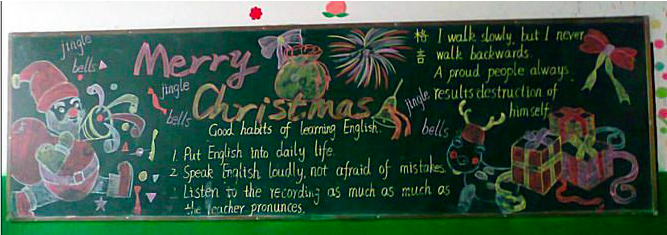 jingle
bells
Merry
Christmas
jingle
bells
jingle
bells
Good habits of learning English.
1. Put English into daily life.
2. Speak English loudly, not afraid of mistakes.
Listen to the recording as much as much as
the teacher pronunces.
格言
I walk slowly, but I never
walk backwards.
A proud people always
results destruction of
himself.